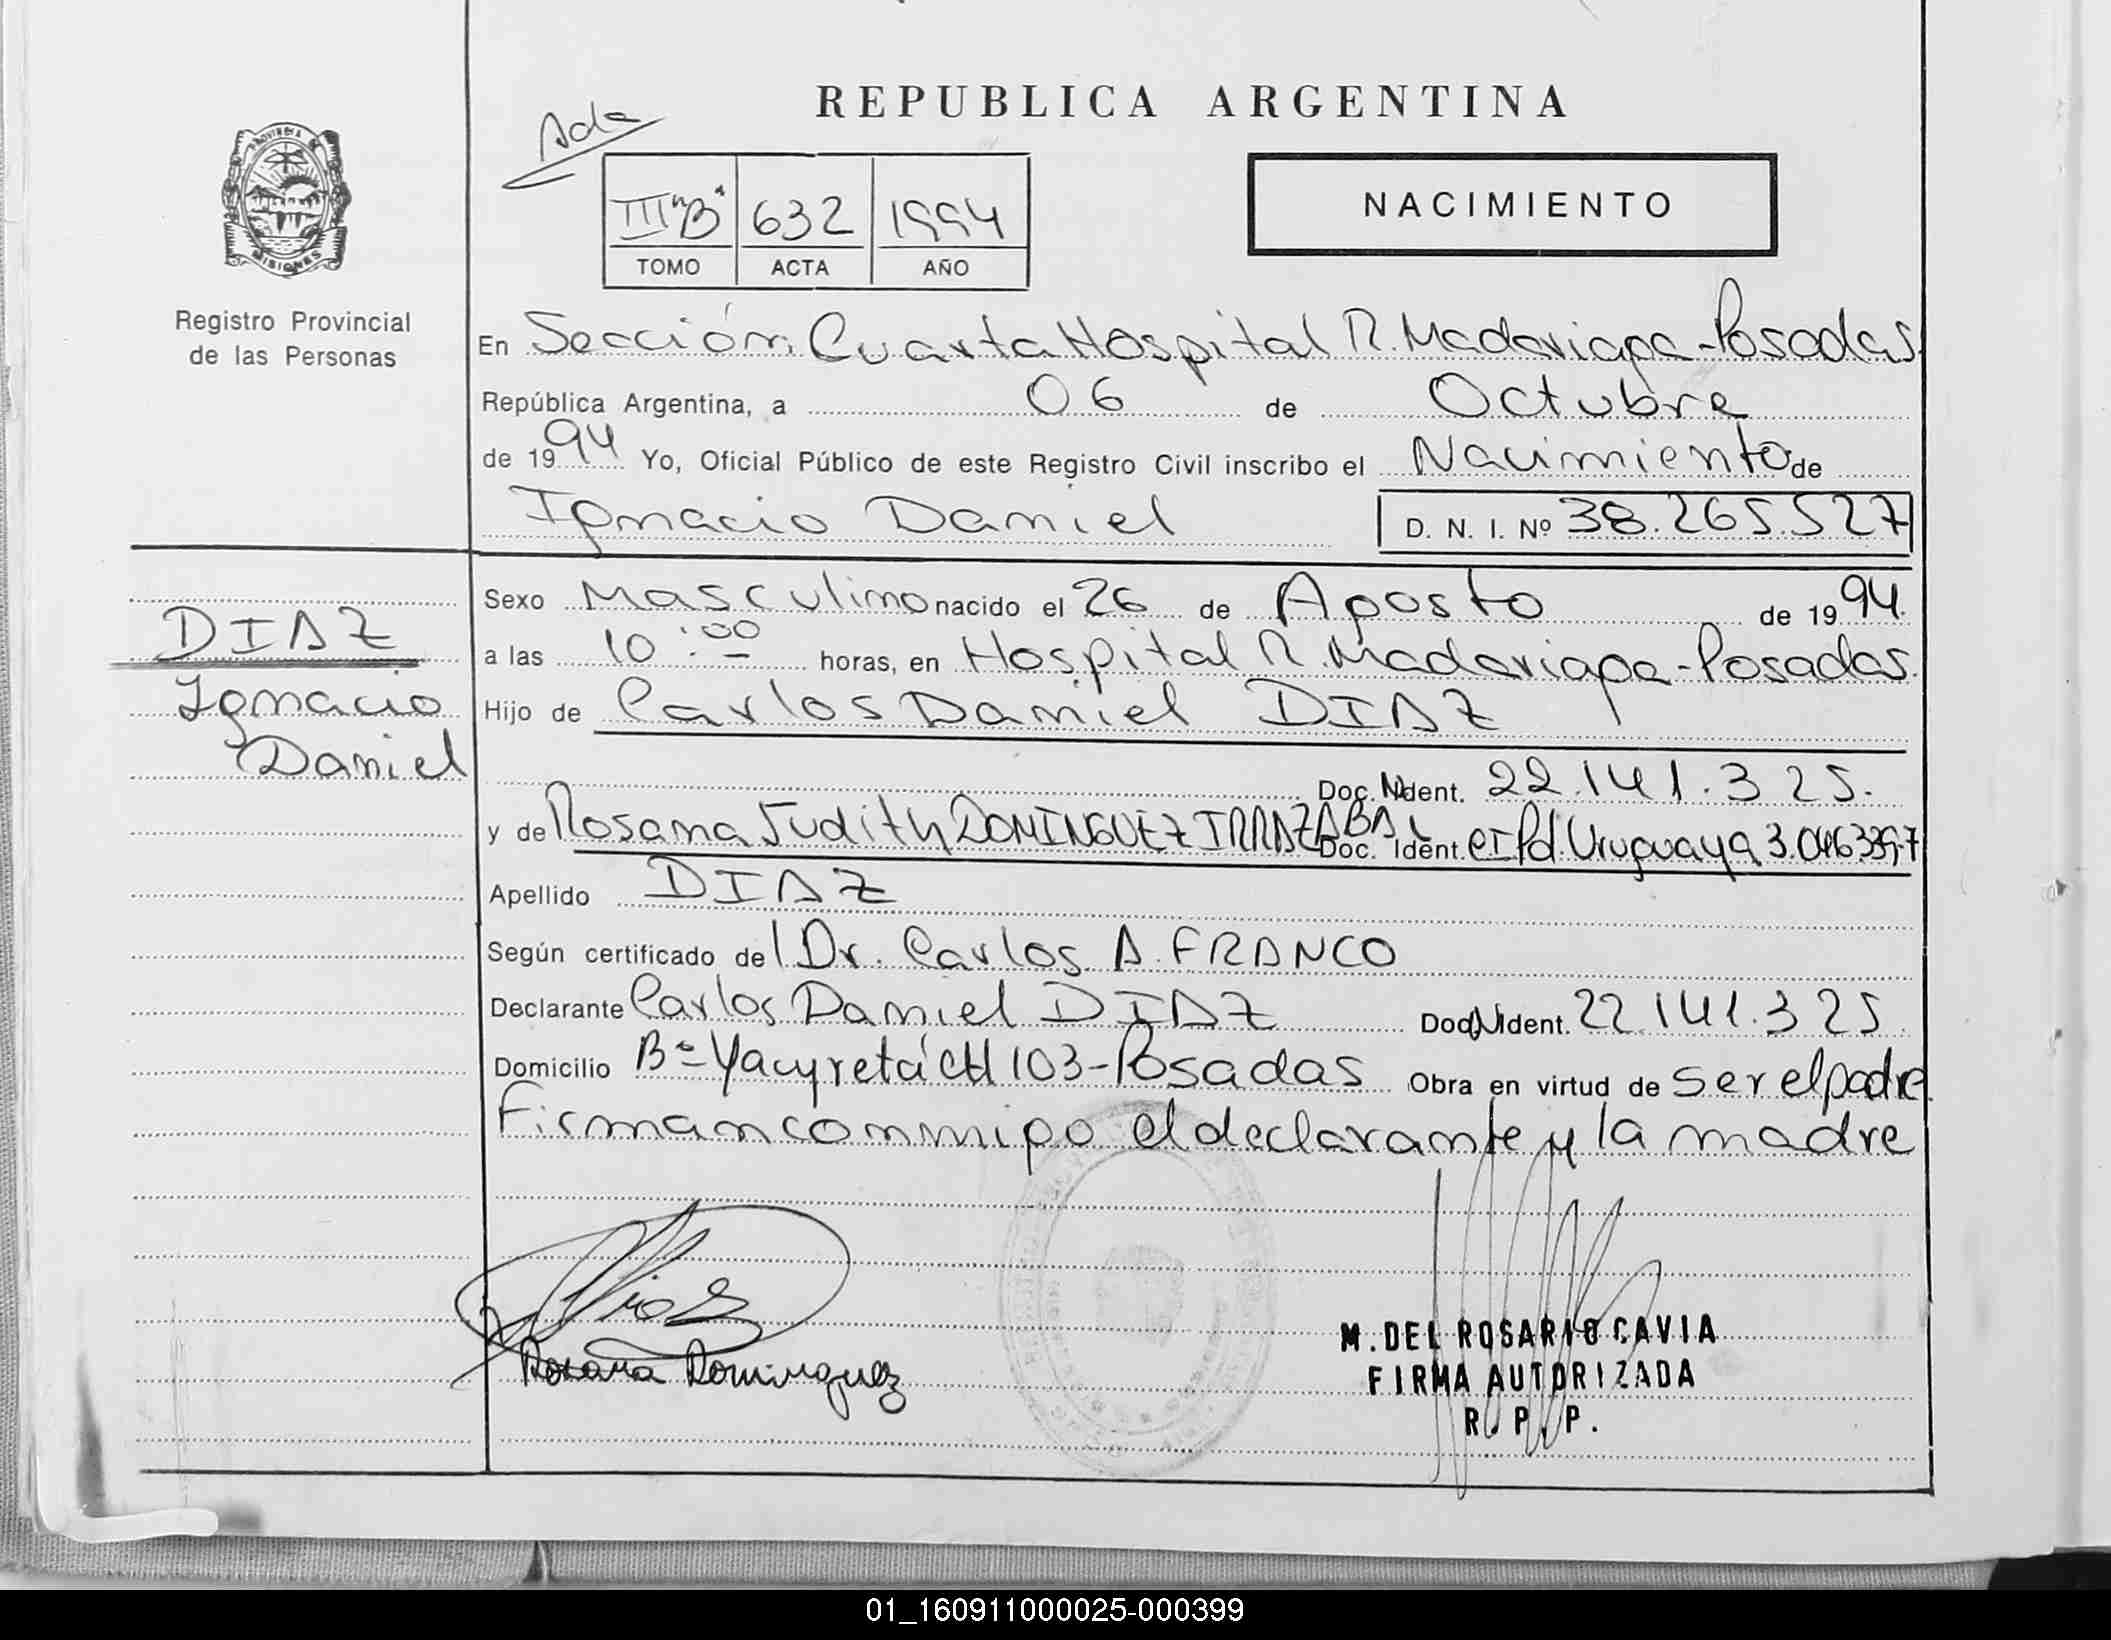 REPUBLICA ARGENTINA
Ada
PROVINCIA
MISIONES
Registro Provincial
de las Personas
III "B" 632 1994
TOMO ACTA AÑO
NACIMIENTO
En Sección Cuarta Hospital R. Madariaga - Posadas
República Argentina, a 06 de Octubre
de 1994 Yo, Oficial Público de este Registro Civil inscribo el Nacimiento de
Ignacio Daniel D. N. I. Nº 38.265.527
DIAZ
Ignacio
Daniel
Sexo Masculino nacido el 26 de Agosto de 1994.
a las 10:00 horas, en Hospital R. Madariaga - Posadas.
Hijo de Carlos Daniel DIAZ
Doc. Ident. 22.141.325.
y de Rosana Judith DOMINGUEZ IRRAZABAL Doc. Ident. CI Pd. Uruguaya
Apellido DIAZ
Según certificado del Dr. Carlos A. FRANCO
Declarante Carlos Daniel DIAZ Doc. Ident. 22.141.325.
Domicilio Bº Yacyretá CH 103 - Posadas Obra en virtud de ser el padre
Firman conmigo el declarante y la madre
Rosana Dominguez
M. DEL ROSARIO CAVIA
FIRMA AUTORIZADA
R. P. P.
01_160911000025-000399